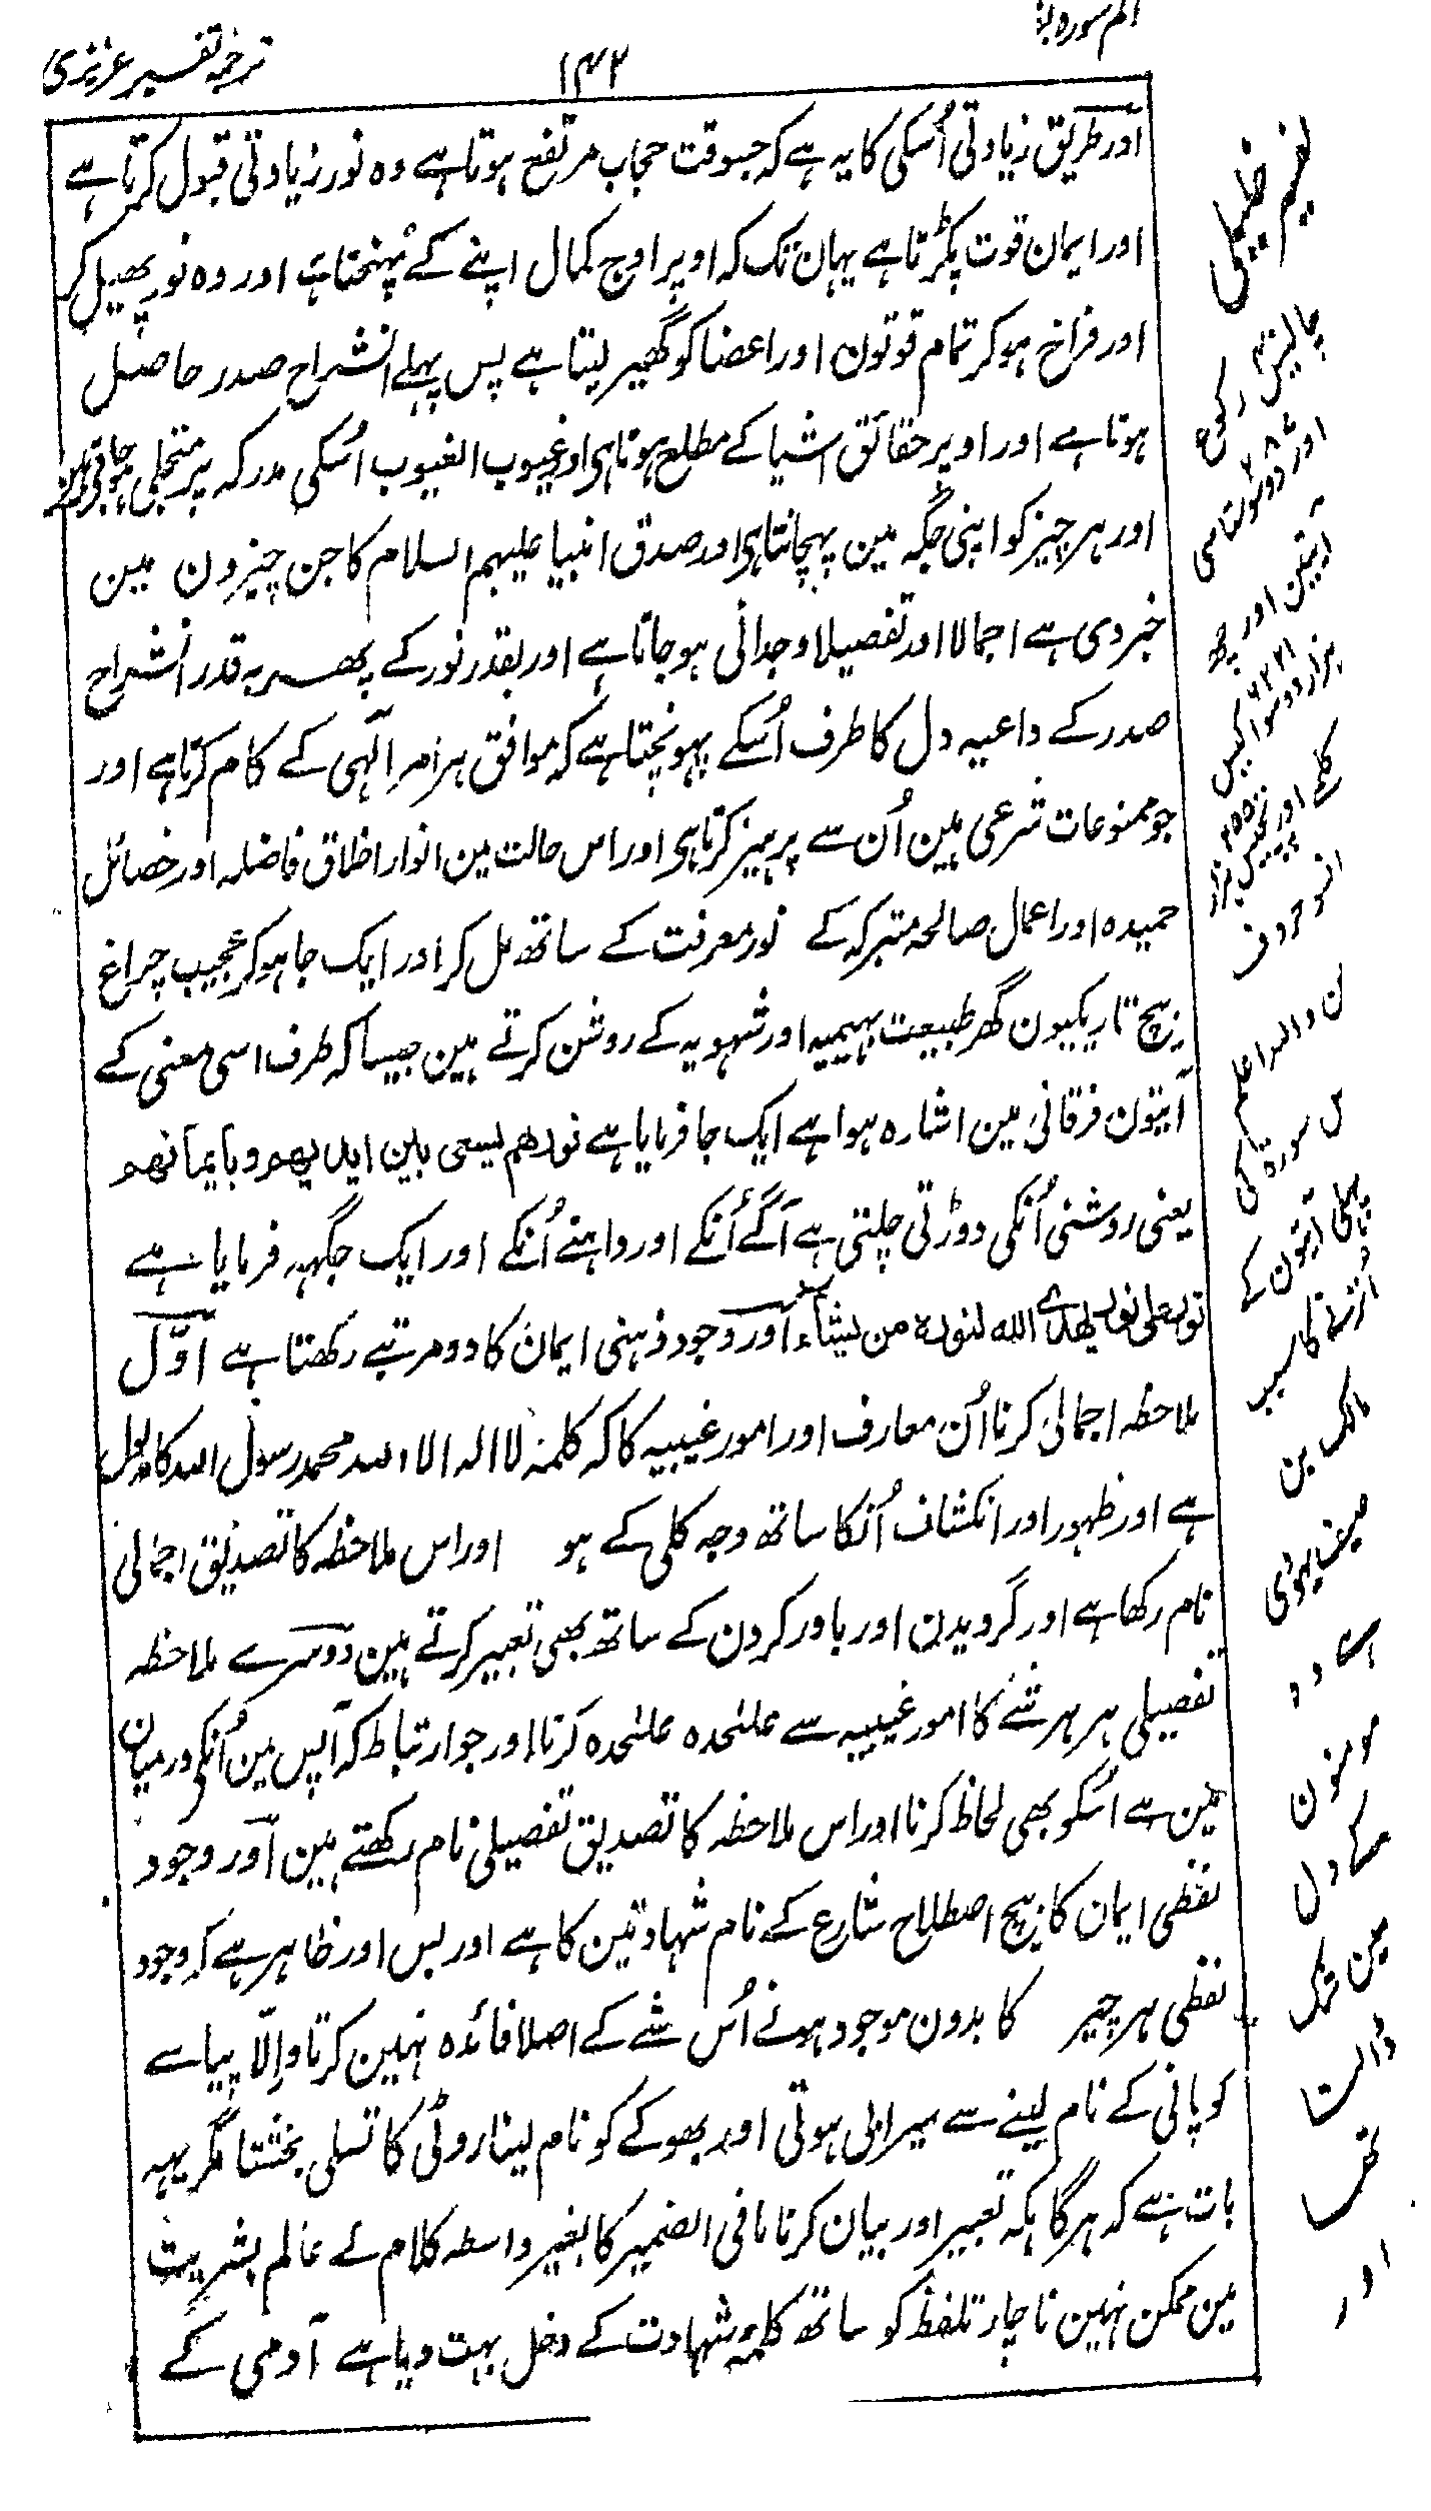 ترجمہ تفسیر عزیزی
۱۴۲
الم سورہ
اور طریق زیادتی اُسکی کا یہ ہے کہ جسوقت حجاب مرتفع ہوتا ہے وہ نور زیادتی قبول کرتا ہے
اور ایمان قوت پکڑتا ہے یہان تک کہ اوپر اوج کمال اپنے کے پُہنچتا ہے اور وہ نور پھیل کر
اور فراخ ہو کر تمام قوتون اور اعضا کو گھیر لیتا ہے پس پہلے انشراح صدر حاصل
ہوتا ہے اور اوپر حقائق اشیا کے مطلع ہوتا ہی اور غیوب الغیوب اُسکی مدرکہ پر متجلی ہو جاتی ہین
اور ہر چیز کو اپنی جگہ مین پہچانتا ہی اور صدق انبیا علیہم السلام کا جن چیزون مین
خبر دی ہے اجمالا اور تفصیلا وجدانی ہو جاتا ہے اور بقدر نور کے پھر بہ قدر انشراح
صدر کے داعیہ دل کا طرف اُسکے پہونچتا ہے کہ موافق ہر امر الٰہی کے کام کرتا ہے اور
جو ممنوعات شرعی ہین اُن سے پرہیز کرتا ہی اور اس حالت مین انوار اخلاق فاضلہ اور خصائل
حمیدہ اور اعمال صالحہ متبرکہ کے نور معرفت کے ساتھ مل کر اور ایک جا ہو کر عجیب چراغ
بیچ تاریکیون گھر طبیعت بہیمیہ اور شہویہ کے روشن کرتے ہین جیسا کہ طرف اسی معنی کے
آیتون فرقانی مین اشارہ ہوا ہے ایک جا فرمایا ہے نورھم یسعی بین ایدیھم و بایمانھم
یعنی روشنی اُنکی دوڑتی چلتی ہے آگے اُنکے اور داہنے اُنکے اور ایک جگہہ فرمایا ہے
نور علی نور یھدی اللہ لنورہ من یشاء اور وجود ذہنی ایمان کا دو مرتبے رکھتا ہے اوّل
ملاحظہ اجمالی کرنا اُن معارف اور امور غیبیہ کا کہ کلمۂ لا الہ الا اللہ محمد رسول اللہ کا مدلول
ہے اور ظہور اور انکشاف اُنکا ساتھ وجہ کلی کے ہو اور اس ملاحظہ کا تصدیق اجمالی
نام رکھا ہے اور گرویدن اور باور کردن کے ساتھ بھی تعبیر کرتے ہین دوسرے ملاحظہ
تفصیلی ہر ہر شے کا امور غیبیہ سے علٰحدہ علٰحدہ کرنا اور جو ارتباط کہ آپس مین اُنکی درمیان
مین ہے اُسکو بھی لحاظ کرنا اور اس ملاحظہ کا تصدیق تفصیلی نام رکھتے ہین اور وجود
لفظی ایمان کا بیچ اصطلاح شارع کے نام شہادتین کا ہے اور بس اور ظاہر ہے کہ وجود
لفظی ہر چیز کا بدون موجود ہونے اُس شے کے اصلا فائدہ نہین کرتا و اِلّا پیاسے
کو پانی کے نام لینے سے سیرابی ہوتی اور بھوکے کو نام لینا روٹی کا تسلی بخشتا مگر یہہ
بات ہے کہ ہر گاہ کہ تعبیر اور بیان کرنا مافی الضمیر کا بغیر واسطہ کلام کے عالم بشریت
مین ممکن نہین ناچار تلفظ کو ساتھ کلمۂ شہادت کے دخل بہت دیا ہے آدمی کے
آیتین اور
ہزار دو سو اکیس ۶۲۲۱
کلمے اور پچیس ہزار
حروف
ن واللہ اعلم
س سورۃ کی
پہلی آیتون کے
مالک بن
صیف یہودی
مومنون
کے دل
مین شک
ڈالتا
تھا
اور